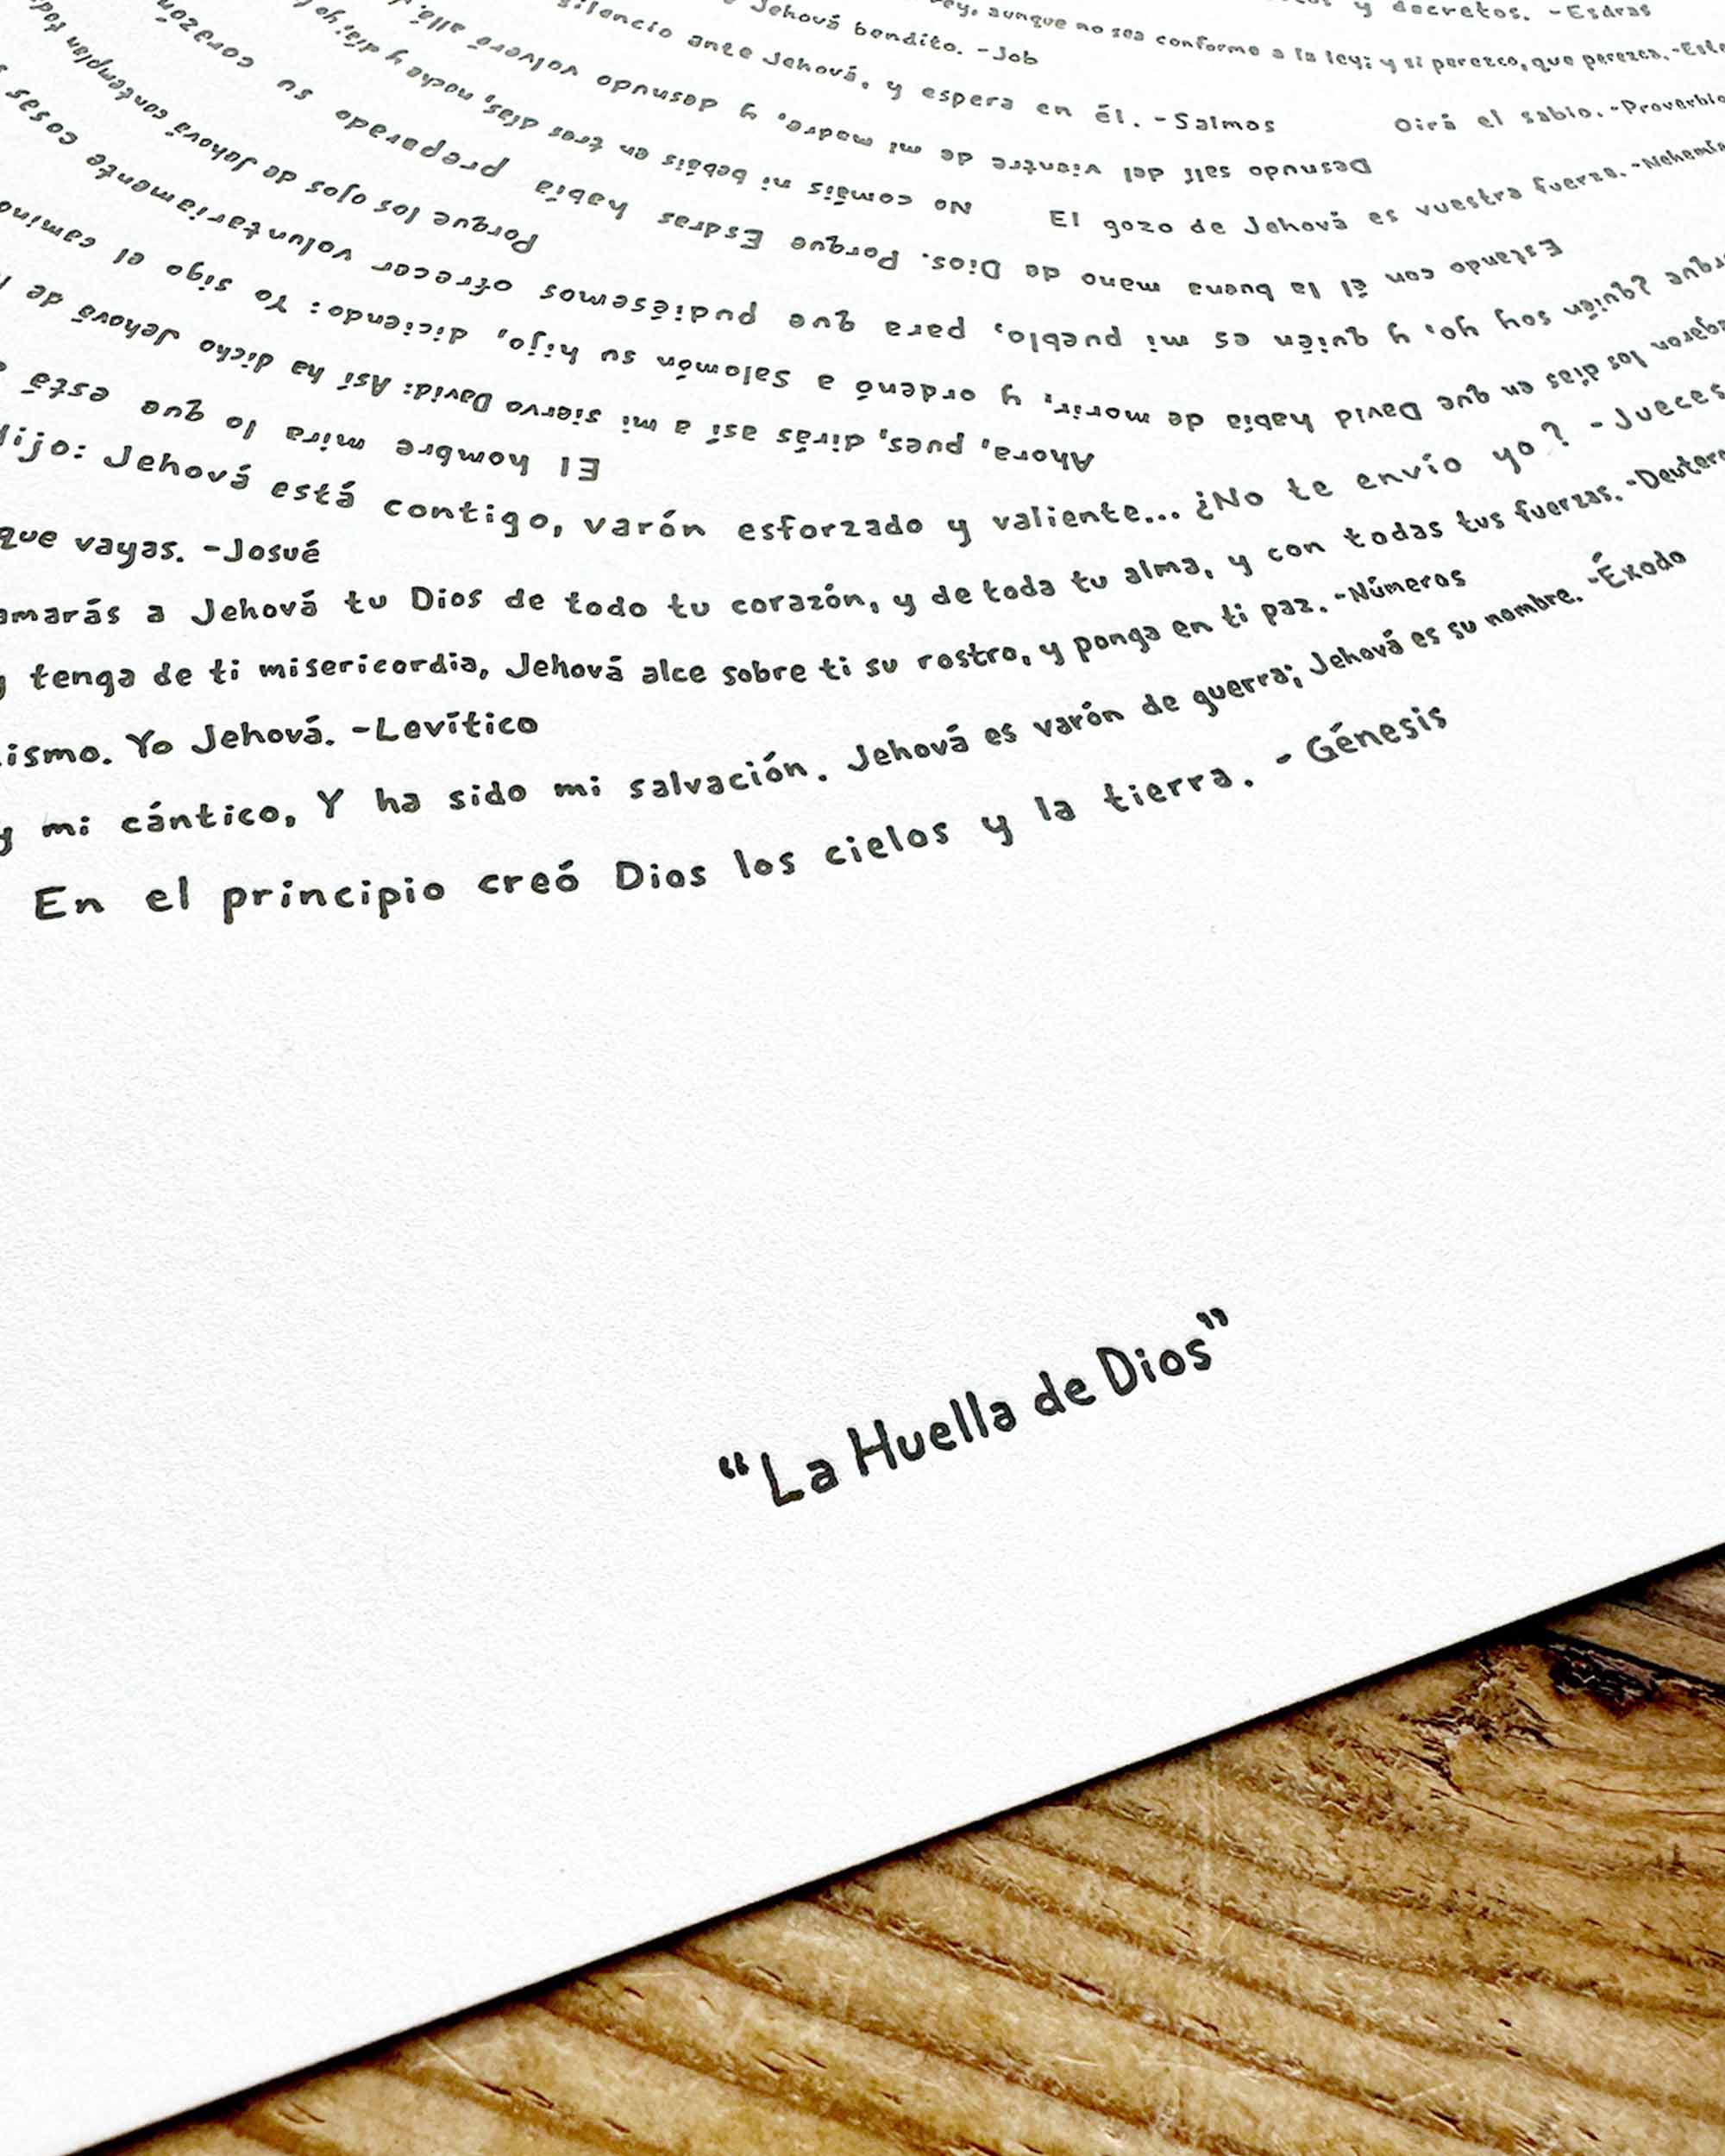 y decretos. -Esdras
aunque no sea conforme a la ley; y si perezco, que perezca. -Este
Jehová bendito. -Job
silencio ante Jehová, y espera en él. -Salmos
Oirá el sabio. -Proverbio
Desnudo salí del vientre de mi madre, y desnudo volveré allá.
No comáis ni bebáis en tres días, noche y día; yo
El gozo de Jehová es vuestra fuerza. -Nehemía
Estando con él la buena mano de Dios. Porque Esdras había preparado su corazón
Porque los ojos de Jehová contemplan toda
Porque ¿quién soy yo, y quién es mi pueblo, para que pudiésemos ofrecer voluntariamente cosas
Llegaron los días en que David había de morir, y ordenó a Salomón su hijo, diciendo: Yo sigo el camino
Ahora, pues, dirás así a mi siervo David: Así ha dicho Jehová de
El hombre mira lo que está
dijo: Jehová está contigo, varón esforzado y valiente... ¿No te envío yo? -Jueces
que vayas. -Josué
amarás a Jehová tu Dios de todo tu corazón, y de toda tu alma, y con todas tus fuerzas. -Deutero
y tenga de ti misericordia, Jehová alce sobre ti su rostro, y ponga en ti paz. -Números
ismo. Yo Jehová. -Levítico
y mi cántico, Y ha sido mi salvación. Jehová es varón de guerra; Jehová es su nombre. -Éxodo
En el principio creó Dios los cielos y la tierra. - Génesis
"La Huella de Dios"